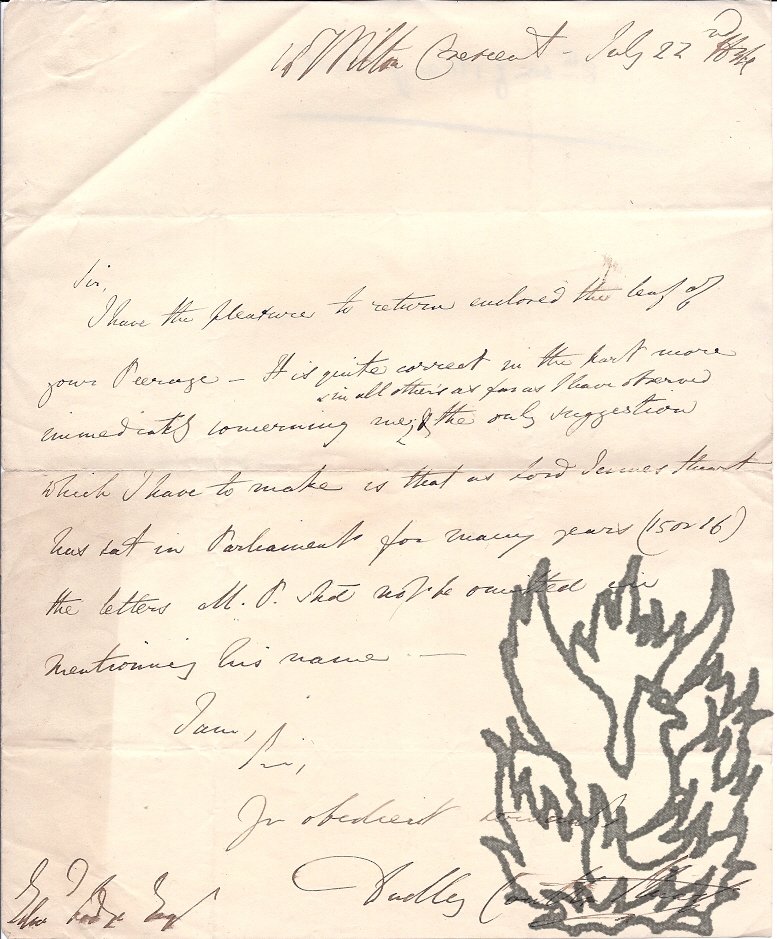 Wilton Crescent - July 22nd
Sir,
I have the pleasure to return enclosed the leaf of
your Peerage - It is quite correct in the part more
& in all others as far as I have observed
immediately concerning me, & the only suggestion
which I have to make is that as Lord James Stuart
has sat in Parliament for many years (15 or 16)
the letters M. P. shd not be omitted in
mentioning his name -
I am,
Sir,
Yr obedient servant
Dudley Coutts Stuart
Esq